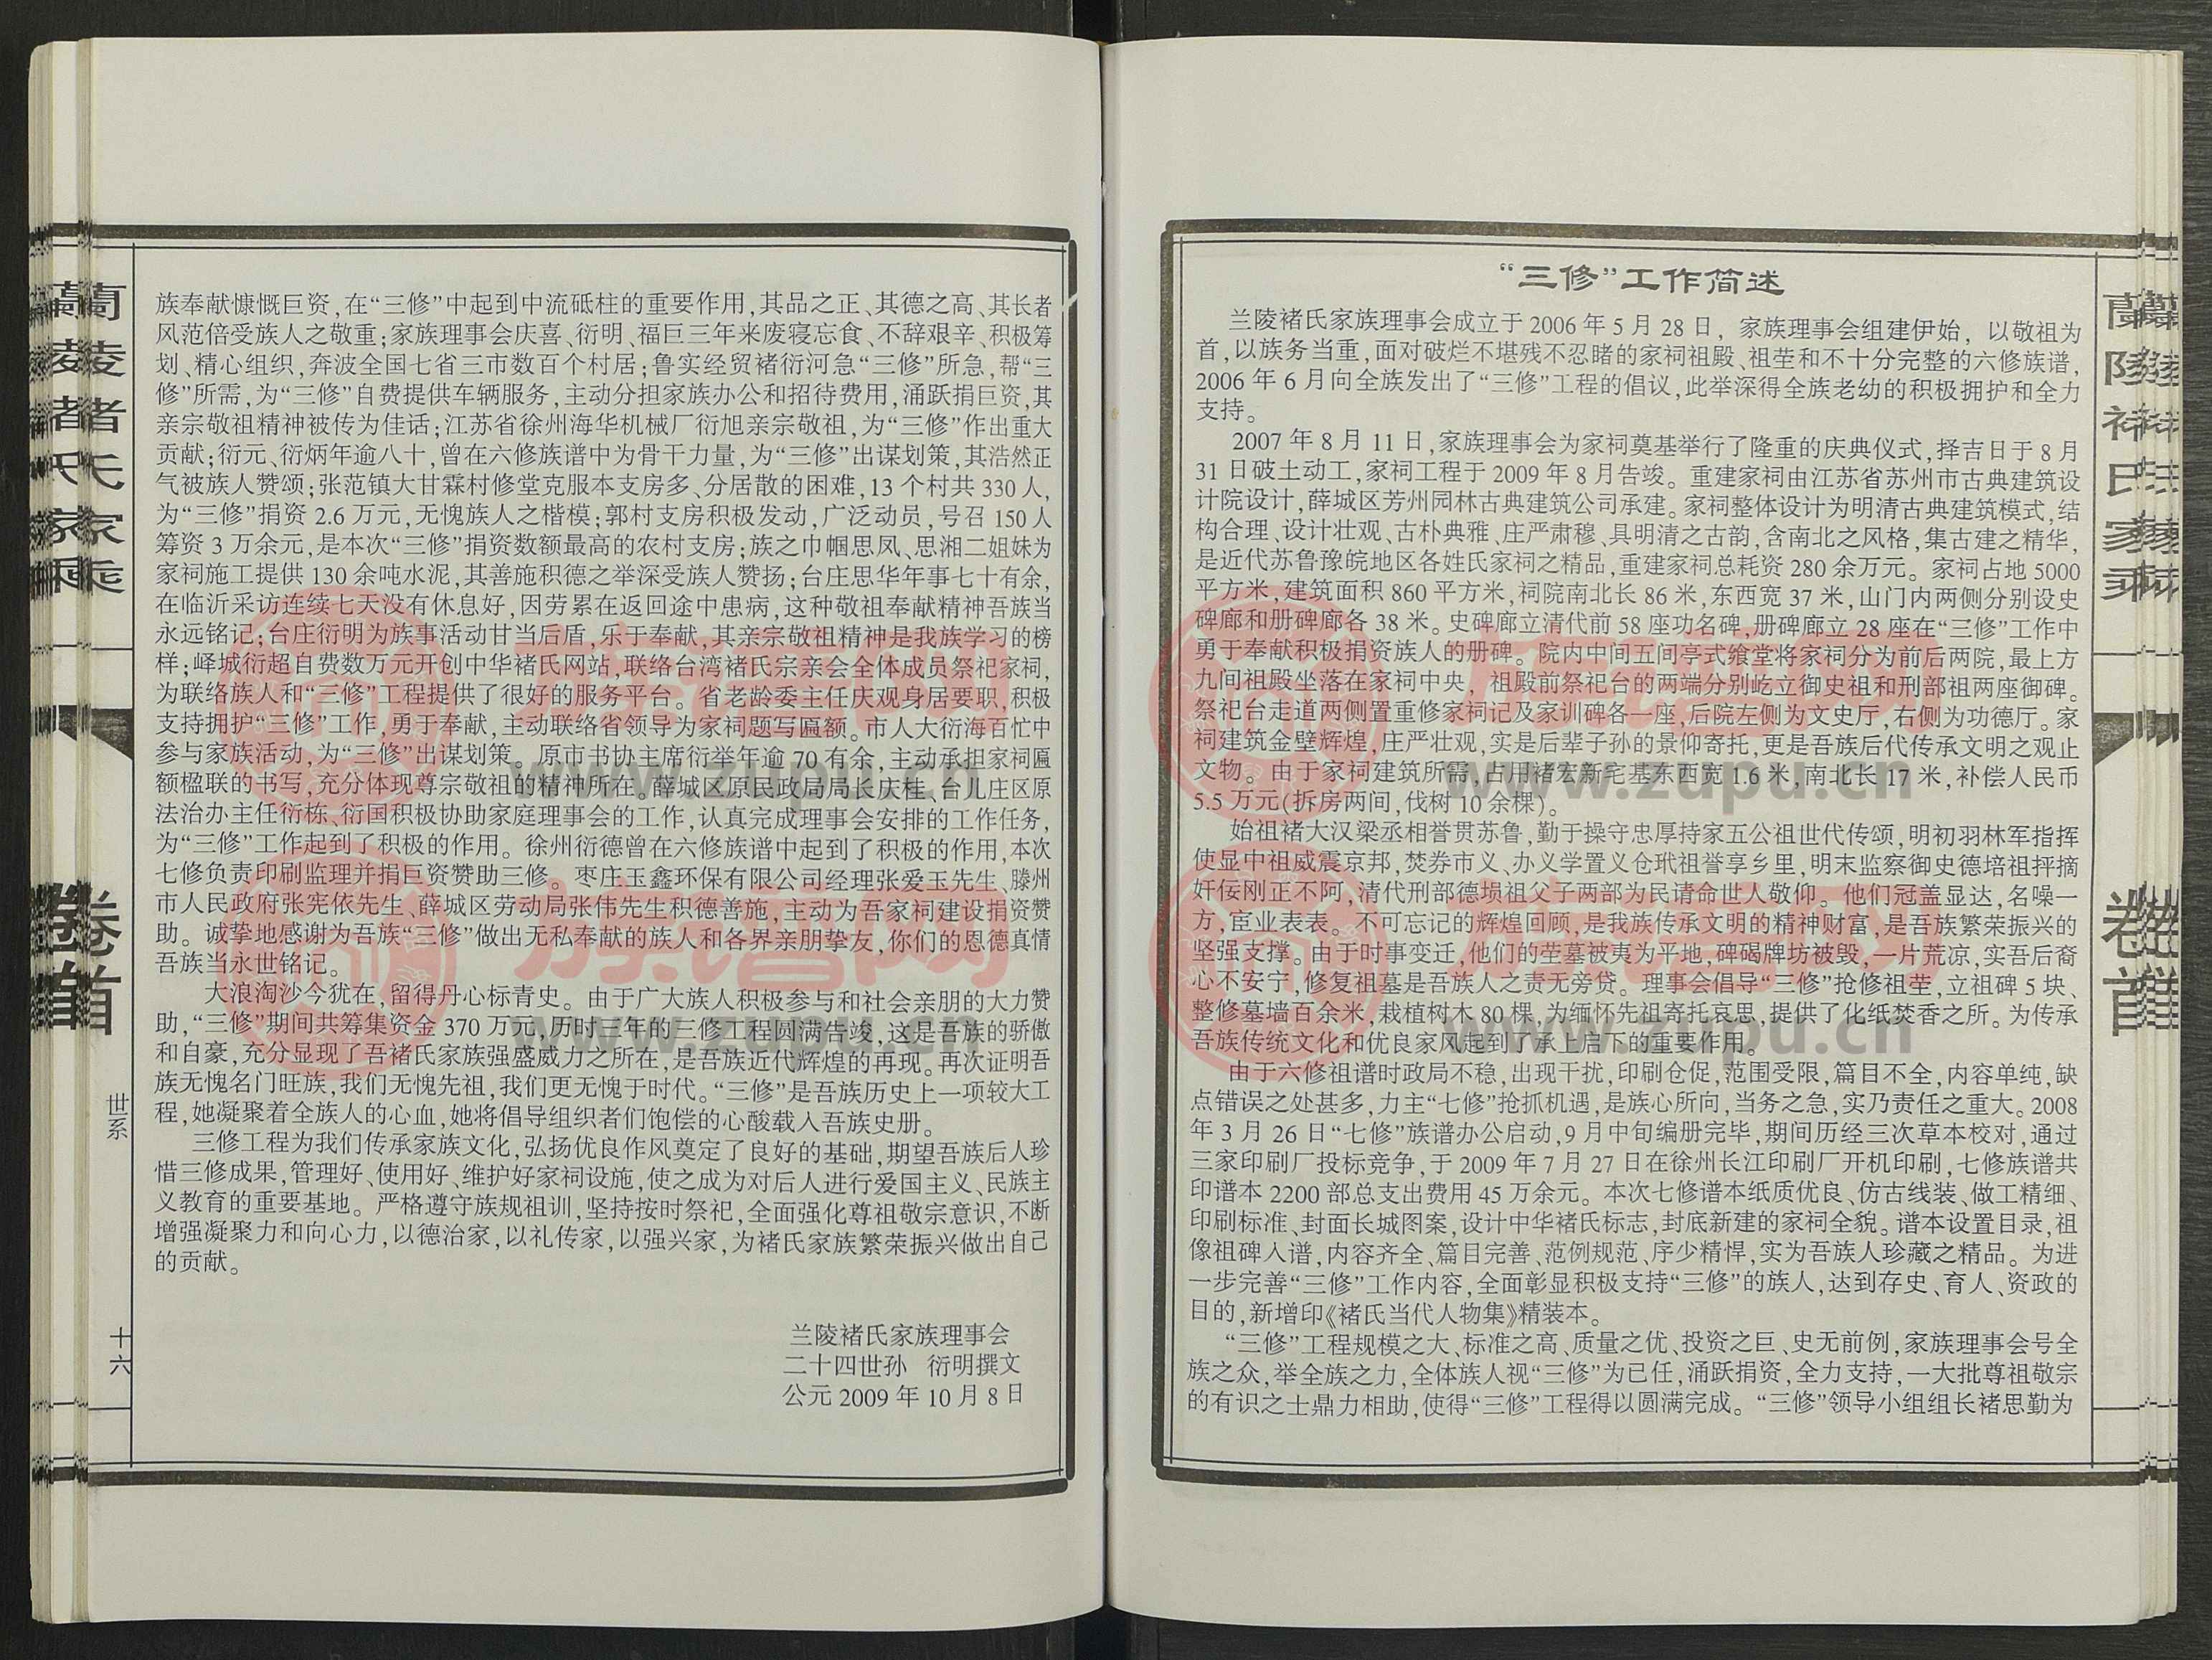 “三修”工作简述
兰陵褚氏家族理事会成立于 2006 年 5 月 28 日，家族理事会组建伊始，以敬祖为
首，以族务当重，面对破烂不堪残不忍睹的家祠祖殿、祖茔和不十分完整的六修族谱，
2006 年 6 月向全族发出了“三修”工程的倡议，此举深得全族老幼的积极拥护和全力
支持。
2007 年 8 月 11 日，家族理事会为家祠奠基举行了隆重的庆典仪式，择吉日于 8 月
31 日破土动工，家祠工程于 2009 年 8 月告竣。重建家祠由江苏省苏州市古典建筑设
计院设计，薛城区芳州园林古典建筑公司承建。家祠整体设计为明清古典建筑模式，结
构合理、设计壮观、古朴典雅、庄严肃穆、具明清之古韵，含南北之风格，集古建之精华，
是近代苏鲁豫皖地区各姓氏家祠之精品，重建家祠总耗资 280 余万元。家祠占地 5000
平方米，建筑面积 860 平方米，祠院南北长 86 米，东西宽 37 米，山门内两侧分别设史
碑廊和册碑廊各 38 米。史碑廊立清代前 58 座功名碑，册碑廊立 28 座在“三修”工作中
勇于奉献积极捐资族人的册碑。院内中间五间亭式飨堂将家祠分为前后两院，最上方
九间祖殿坐落在家祠中央，祖殿前祭祀台的两端分别屹立御史祖和刑部祖两座御碑。
祭祀台走道两侧置重修家祠记及家训碑各一座，后院左侧为文史厅，右侧为功德厅。家
祠建筑金壁辉煌，庄严壮观，实是后辈子孙的景仰寄托，更是吾族后代传承文明之观止
文物。由于家祠建筑所需，占用褚宏新宅基东西宽 1.6 米，南北长 17 米，补偿人民币
5.5 万元(拆房两间，伐树 10 余棵)。
始祖褚大汉梁丞相誉贯苏鲁，勤于操守忠厚持家五公祖世代传颂，明初羽林军指挥
使显中祖威震京邦，焚券市义、办义学置义仓玳祖誉享乡里，明末监察御史德培祖抨摘
奸佞刚正不阿，清代刑部德埙祖父子两部为民请命世人敬仰。他们冠盖显达，名噪一
方，宦业表表。不可忘记的辉煌回顾，是我族传承文明的精神财富，是吾族繁荣振兴的
坚强支撑。由于时事变迁，他们的茔墓被夷为平地，碑碣牌坊被毁，一片荒凉，实吾后裔
心不安宁，修复祖墓是吾族人之责无旁贷。理事会倡导“三修”抢修祖茔，立祖碑 5 块、
整修墓墙百余米，栽植树木 80 棵，为缅怀先祖寄托哀思，提供了化纸焚香之所。为传承
吾族传统文化和优良家风起到了承上启下的重要作用。
由于六修祖谱时政局不稳，出现干扰，印刷仓促，范围受限，篇目不全，内容单纯，缺
点错误之处甚多，力主“七修”抢抓机遇，是族心所向，当务之急，实乃责任之重大。2008
年 3 月 26 日“七修”族谱办公启动，9 月中旬编册完毕，期间历经三次草本校对，通过
三家印刷厂投标竞争，于 2009 年 7 月 27 日在徐州长江印刷厂开机印刷，七修族谱共
印谱本 2200 部总支出费用 45 万余元。本次七修谱本纸质优良、仿古线装、做工精细、
印刷标准、封面长城图案，设计中华褚氏标志，封底新建的家祠全貌。谱本设置目录，祖
像祖碑入谱，内容齐全、篇目完善、范例规范、序少精悍，实为吾族人珍藏之精品。为进
一步完善“三修”工作内容，全面彰显积极支持“三修”的族人，达到存史、育人、资政的
目的，新增印《褚氏当代人物集》精装本。
“三修”工程规模之大、标准之高、质量之优、投资之巨、史无前例，家族理事会号全
族之众，举全族之力，全体族人视“三修”为已任，涌跃捐资，全力支持，一大批尊祖敬宗
的有识之士鼎力相助，使得“三修”工程得以圆满完成。“三修”领导小组组长褚思勤为
族奉献慷慨巨资，在“三修”中起到中流砥柱的重要作用，其品之正、其德之高、其长者
风范倍受族人之敬重；家族理事会庆喜、衍明、福巨三年来废寝忘食、不辞艰辛、积极筹
划、精心组织，奔波全国七省三市数百个村居；鲁实经贸褚衍河急“三修”所急，帮“三
修”所需，为“三修”自费提供车辆服务，主动分担家族办公和招待费用，涌跃捐巨资，其
亲宗敬祖精神被传为佳话；江苏省徐州海华机械厂衍旭亲宗敬祖，为“三修”作出重大
贡献；衍元、衍炳年逾八十，曾在六修族谱中为骨干力量，为“三修”出谋划策，其浩然正
气被族人赞颂；张范镇大甘霖村修堂克服本支房多、分居散的困难，13 个村共 330 人，
为“三修”捐资 2.6 万元，无愧族人之楷模；郭村支房积极发动，广泛动员，号召 150 人
筹资 3 万余元，是本次“三修”捐资数额最高的农村支房；族之巾帼思凤、思湘二姐妹为
家祠施工提供 130 余吨水泥，其善施积德之举深受族人赞扬；台庄思华年事七十有余，
在临沂采访连续七天没有休息好，因劳累在返回途中患病，这种敬祖奉献精神吾族当
永远铭记；台庄衍明为族事活动甘当后盾，乐于奉献，其亲宗敬祖精神是我族学习的榜
样；峄城衍超自费数万元开创中华褚氏网站，联络台湾褚氏宗亲会全体成员祭祀家祠，
为联络族人和“三修”工程提供了很好的服务平台。省老龄委主任庆观身居要职，积极
支持拥护“三修”工作，勇于奉献，主动联络省领导为家祠题写匾额。市人大衍海百忙中
参与家族活动，为“三修”出谋划策。原市书协主席衍举年逾 70 有余，主动承担家祠匾
额楹联的书写，充分体现尊宗敬祖的精神所在。薛城区原民政局局长庆桂、台儿庄区原
法治办主任衍栋、衍国积极协助家庭理事会的工作，认真完成理事会安排的工作任务，
为“三修”工作起到了积极的作用。徐州衍德曾在六修族谱中起到了积极的作用，本次
七修负责印刷监理并捐巨资赞助三修。枣庄玉鑫环保有限公司经理张爱玉先生、滕州
市人民政府张宪依先生、薛城区劳动局张伟先生积德善施，主动为吾家祠建设捐资赞
助。诚挚地感谢为吾族“三修”做出无私奉献的族人和各界亲朋挚友，你们的恩德真情
吾族当永世铭记。
大浪淘沙今犹在，留得丹心标青史。由于广大族人积极参与和社会亲朋的大力赞
助，“三修”期间共筹集资金 370 万元，历时三年的三修工程圆满告竣，这是吾族的骄傲
和自豪，充分显现了吾褚氏家族强盛威力之所在，是吾族近代辉煌的再现。再次证明吾
族无愧名门旺族，我们无愧先祖，我们更无愧于时代。“三修”是吾族历史上一项较大工
程，她凝聚着全族人的心血，她将倡导组织者们饱偿的心酸载入吾族史册。
三修工程为我们传承家族文化，弘扬优良作风奠定了良好的基础，期望吾族后人珍
惜三修成果，管理好、使用好、维护好家祠设施，使之成为对后人进行爱国主义、民族主
义教育的重要基地。严格遵守族规祖训，坚持按时祭祀，全面强化尊祖敬宗意识，不断
增强凝聚力和向心力，以德治家，以礼传家，以强兴家，为褚氏家族繁荣振兴做出自己
的贡献。
兰陵褚氏家族理事会
二十四世孙 衍明撰文
公元 2009 年 10 月 8 日
蘭陵褚氏家乘
卷首
世系
十六
族谱网
www.zupu.cn
族谱网
www.zupu.cn
族谱网
www.zupu.cn
族谱网
www.zupu.cn